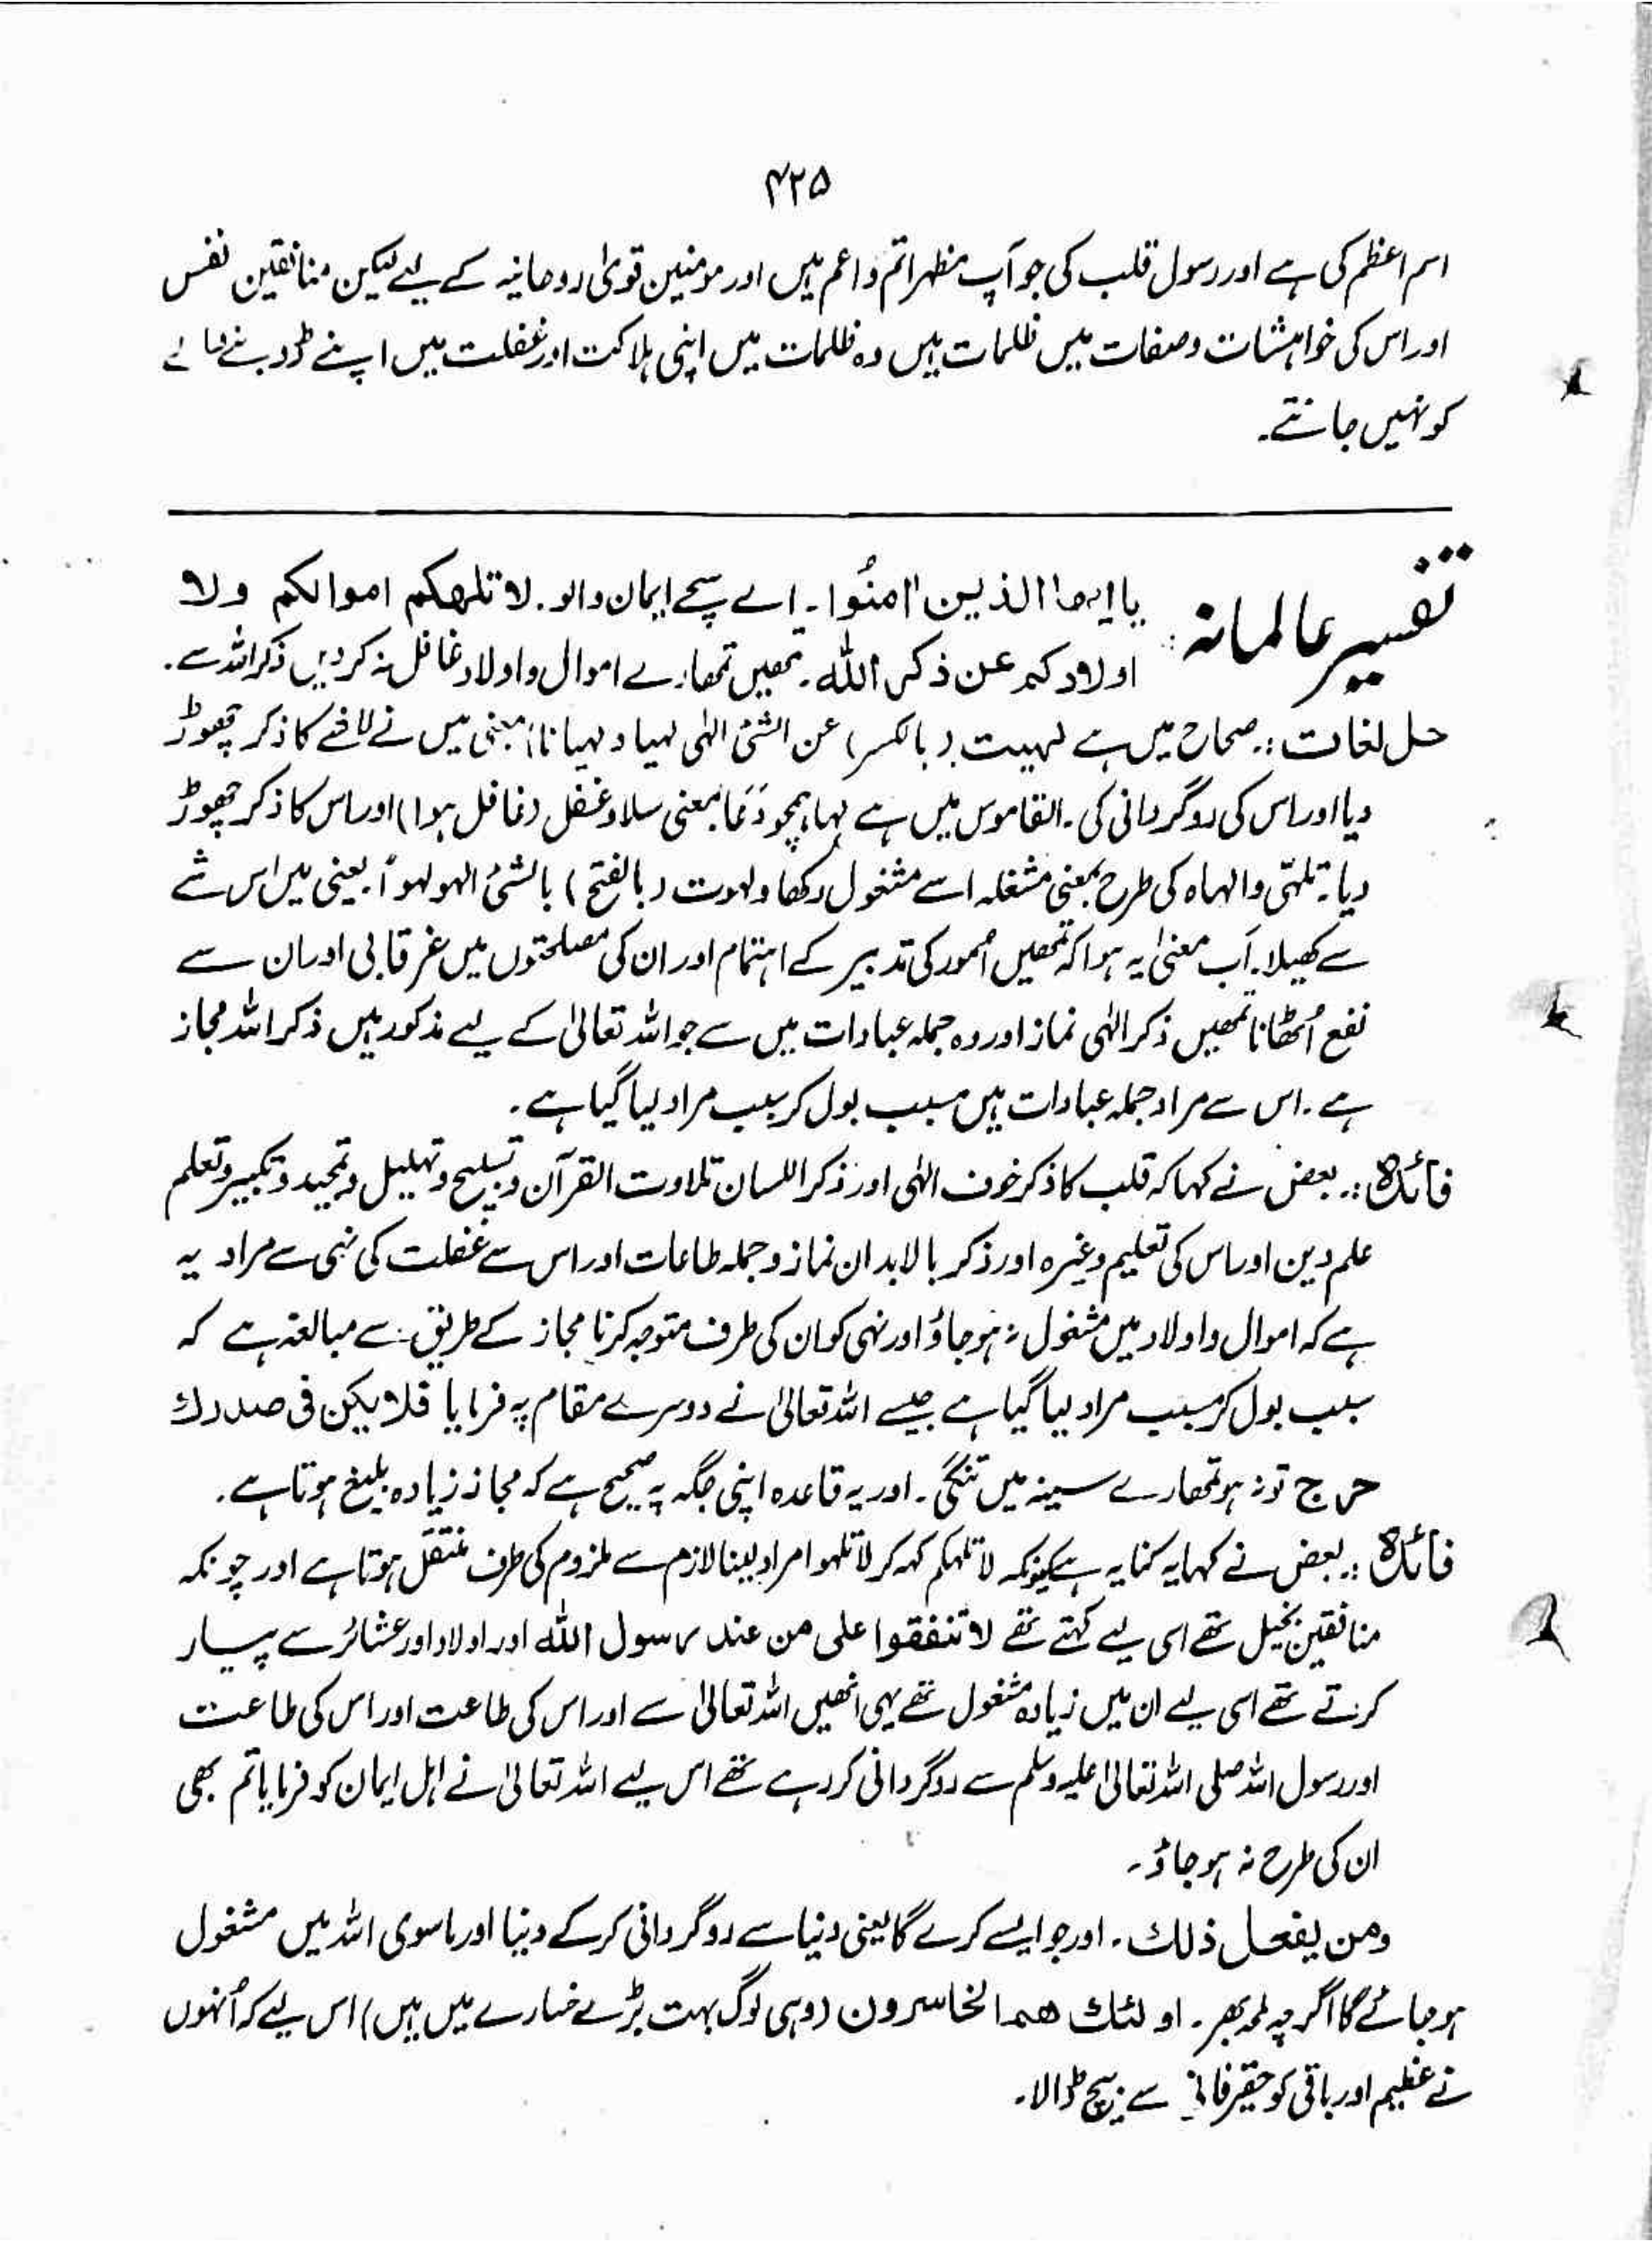 ۴۲۵
اسم اعظم کی ہے اور رسول قلب کی جو آپ مظہر اتم و اعم ہیں اور مومنین قویٰ روحانیہ کے لیے لیکن منافقین نفس
اور اس کی خواہشات وصفات میں ظلمات ہیں وہ ظلمات میں اپنی ہلاکت اور غفلت میں اپنے
کو نہیں جانتے۔
تفسیر عالمانہ :
یا ایھا الذین اٰمنُوا۔ اے سچے ایمان والو۔ لا تلھکم اموالکم ولا
اولادکم عن ذکر اللّٰہ۔ تمھیں تمھارے اموال و اولاد غافل نہ کردیں ذکر اللہ سے۔
حل لغات :۔ صحاح میں ہے لہیت (بالکسر) عن الشئ الہٰی لہیا و لہیانا) بمعنی میں نے لانے کا ذکر چھوڑ
دیا اور اس کی روگردانی کی۔ القاموس میں ہے لہا ہمچو دَعَا بمعنی سلا و غفل (غافل ہوا) اور اس کا ذکر چھوڑ
دیا۔ تلہّی و الہاہ کی طرح بمعنی مشغلہ اسے مشغول رکھا ولہوت (بالفتح) بالشئ الہو لہواً۔ یعنی میں اس شے
سے کھیلا۔ اَب معنیٰ یہ ہوا کہ تمھیں اُمور کی تدبیر کے اہتمام اور ان کی مصلحتوں میں غرقابی اور ان سے
نفع اُٹھانا تمھیں ذکر الٰہی نماز اور وہ جملہ عبادات میں سے جو اللہ تعالیٰ کے لیے مذکور ہیں ذکر اللہ مجاز
ہے۔ اس سے مراد جملہ عبادات ہیں مسبب بول کر سبب مراد لیا گیا ہے۔
فائدہ :۔ بعض نے کہا کہ قلب کا ذکر خوف الٰہی اور ذکر اللسان تلاوت القرآن و تسبیح و تہلیل و تمجید و تکبیر و تعلم
علم دین اور اس کی تعلیم وغیرہ اور ذکر بالابدان نماز و جملہ طاعات اور اس سے غفلت کی نہی سے مراد یہ
ہے کہ اموال و اولاد میں مشغول نہ ہو جاؤ اور نہی کو ان کی طرف متوجہ کرنا مجاز کے طریق سے مبالغہ ہے کہ
سبب بول کر مسبب مراد لیا گیا ہے جیسے اللہ تعالیٰ نے دوسرے مقام پہ فرمایا فلا یکن فی صدرك
حرج تو نہ ہو تمھارے سینہ میں تنگی۔ اور یہ قاعدہ اپنی جگہ پہ صحیح ہے کہ مجاز زیادہ بلیغ ہوتا ہے۔
فائدہ :۔ بعض نے کہا یہ کنایہ ہے کیونکہ لاتلہکم کہہ کر لاتلہوا مراد لینا لازم سے ملزوم کی طرف منتقل ہوتا ہے اور چونکہ
منافقین بخیل تھے اسی لیے کہتے تھے لا تنفقوا علی من عند رسول اللّٰہ اور اولاد اور عشائر سے پیار
کرتے تھے اسی لیے ان میں زیادہ مشغول تھے یہی انھیں اللہ تعالیٰ سے اور اس کی طاعت اور اس کی طاعت
اور رسول اللہ صلی اللہ تعالیٰ علیہ وسلم سے روگردانی کر رہے تھے اس لیے اللہ تعالیٰ نے اہل ایمان کو فرمایا تم بھی
ان کی طرح نہ ہو جاؤ۔
ومن یفعل ذلك۔ اور جو ایسے کرے گا یعنی دنیا سے روگردانی کرکے دنیا اور ماسوی اللہ میں مشغول
ہو جائے گا اگرچہ لمحہ بھر۔ اولئك ھم الخاسرون (وہی لوگ بہت بڑے خسارے میں ہیں) اس لیے کہ اُنھوں
نے عظیم اور باقی کو حقیر فانی سے بیچ ڈالا۔